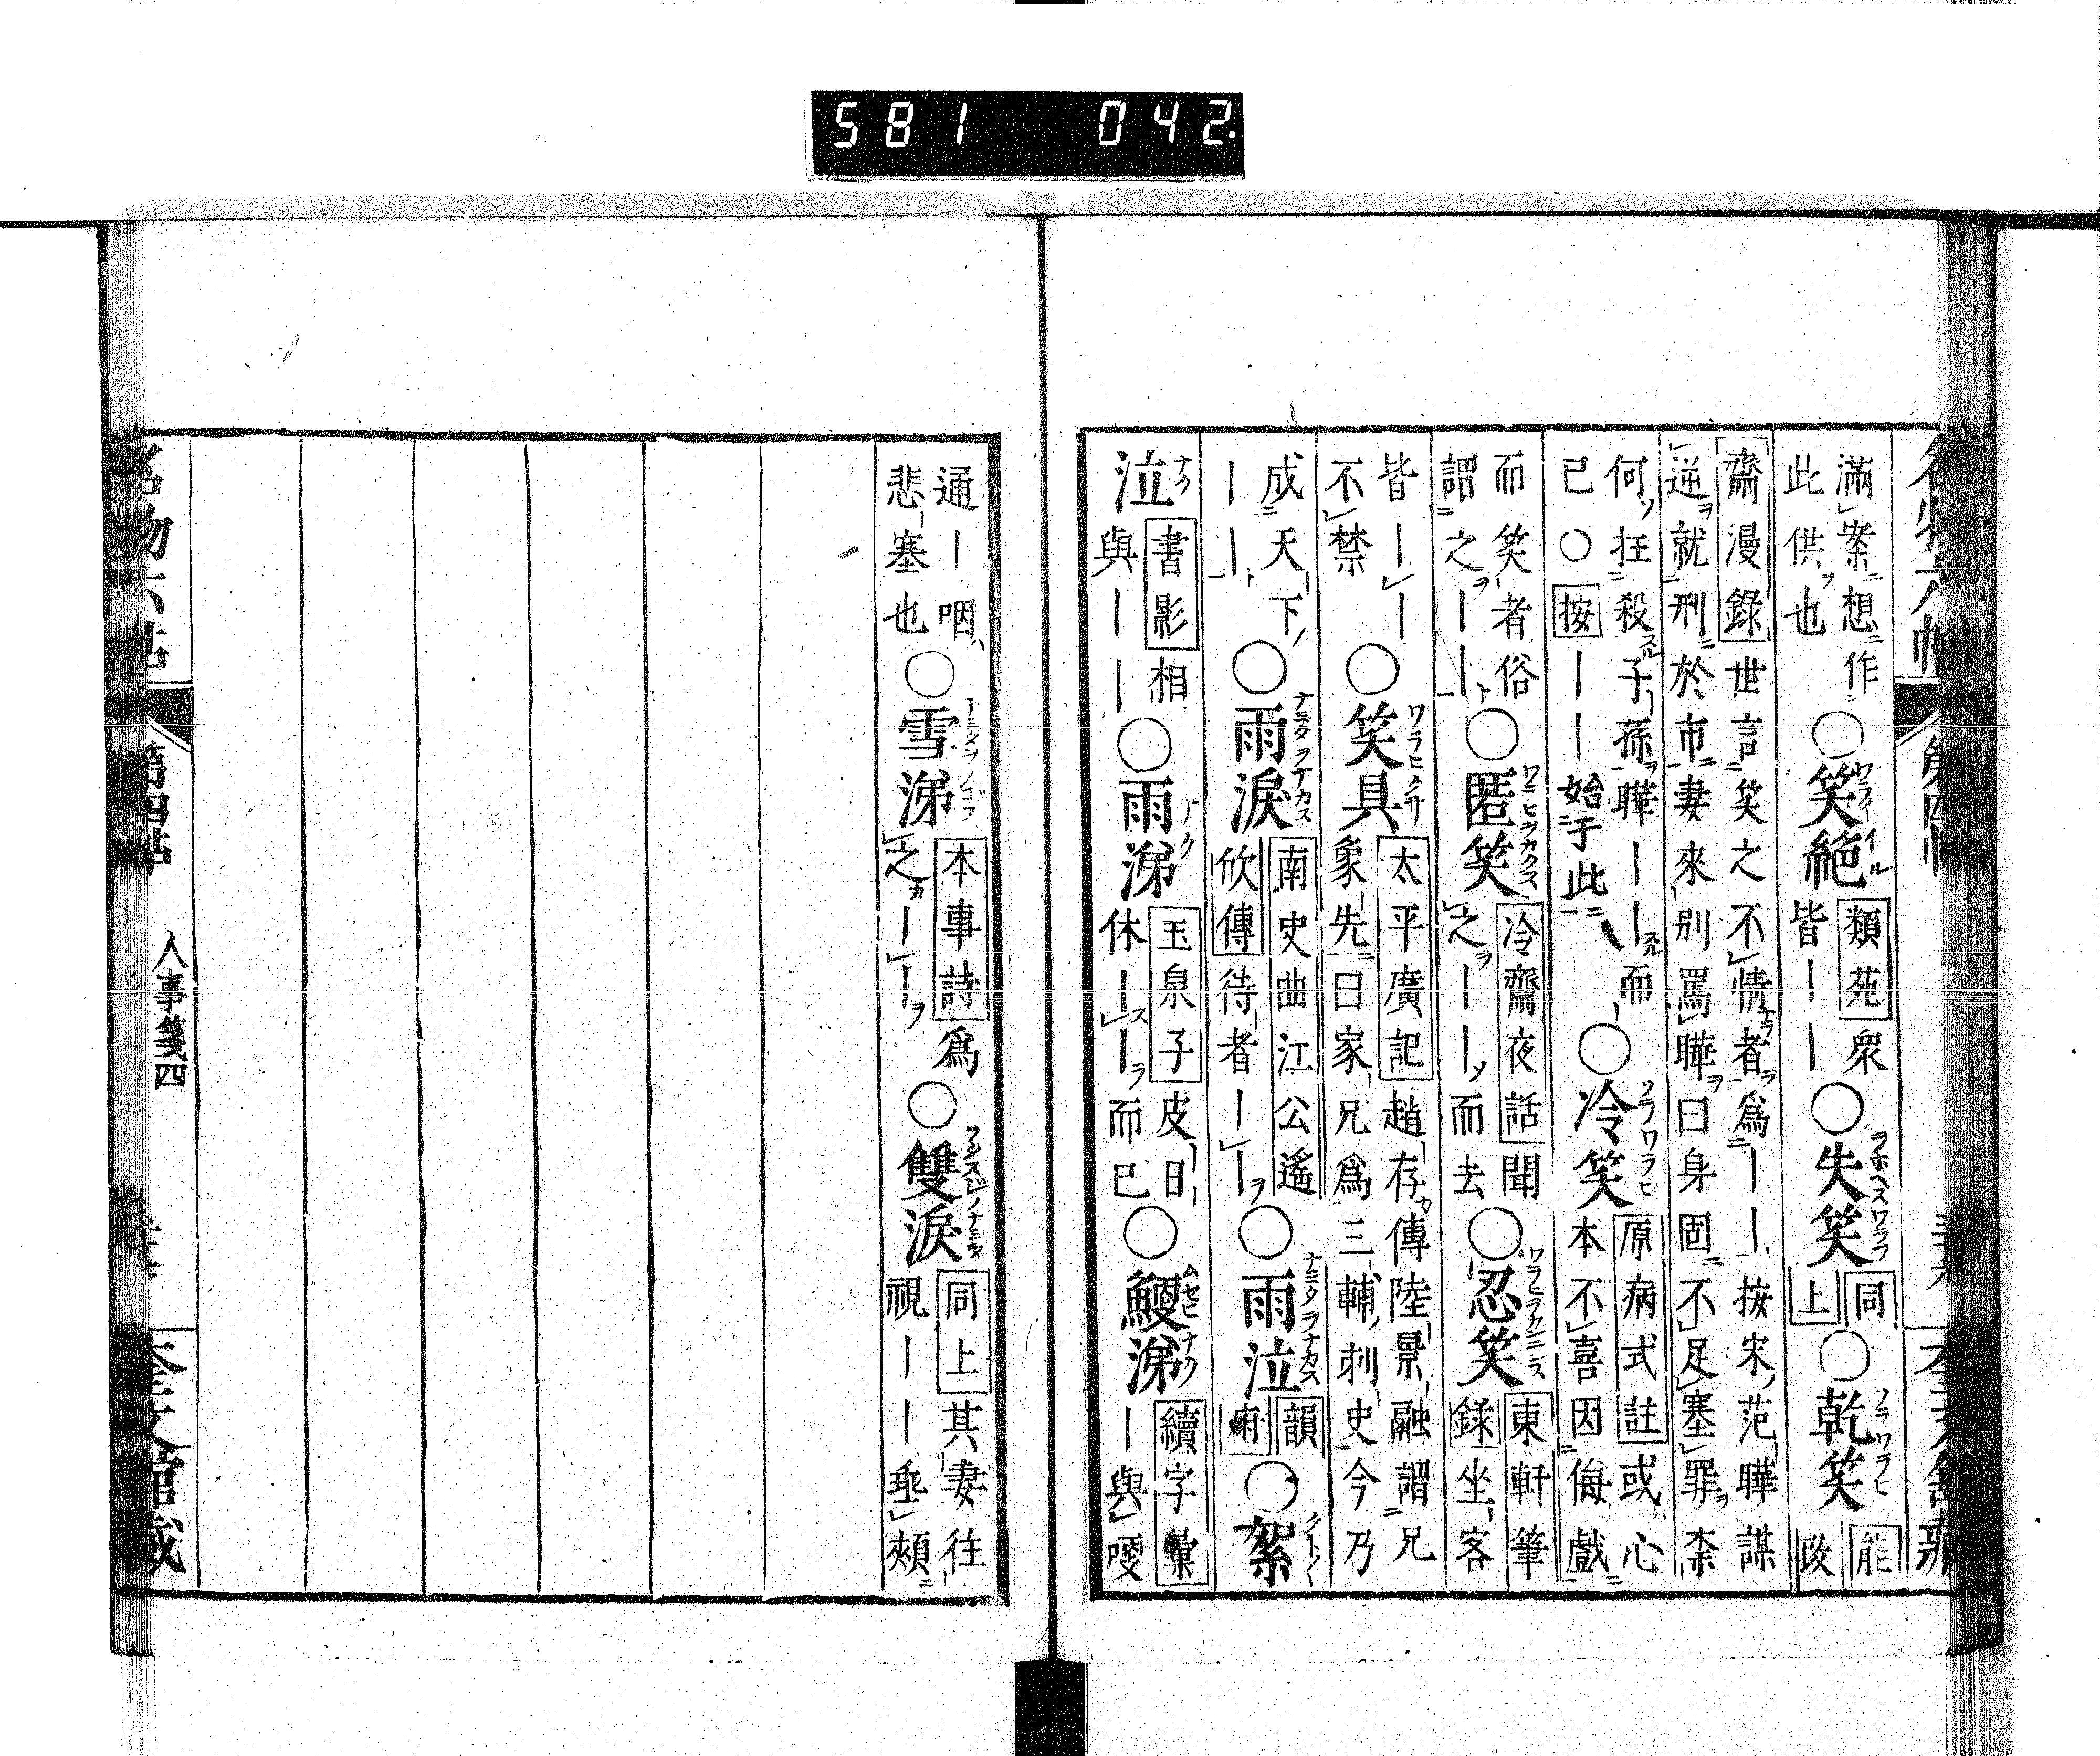 581 042
名物六帖 第四帖
滿案想作
此供也
○笑絶 類苑衆
皆｜｜
○失笑 同
上
○乾笑 能
改
齋漫錄世言笑之不情者爲｜｜按宋范曄謀
逆就刑於市妻來別罵曄曰身固不足塞罪柰
何狂殺子孫曄｜｜而
已○按｜｜始于此
○冷笑 原病式註或心
本不喜因侮戲
而笑者俗
謂之｜｜
○匿笑 冷齋夜話聞
之｜｜而去
○忍笑 東軒筆
錄坐客
皆｜｜
不禁
○笑具 太平廣記趙存傳陸景融謂兄
象先曰家兄爲三輔刺史今乃
成天下
｜｜
○雨淚 南史曲江公遙
欣傳待者｜｜
○雨泣 韻
府
○絮
泣 書影相
與｜｜
○雨涕 玉泉子皮日
休｜｜而已
○鯁涕 續字彙
｜與哽
通｜咽
悲塞也
○雪涕 本事詩爲
之｜｜
○雙淚 同上其妻往
視｜｜垂頰
名物六帖 第四帖 人事箋四 奎文館藏